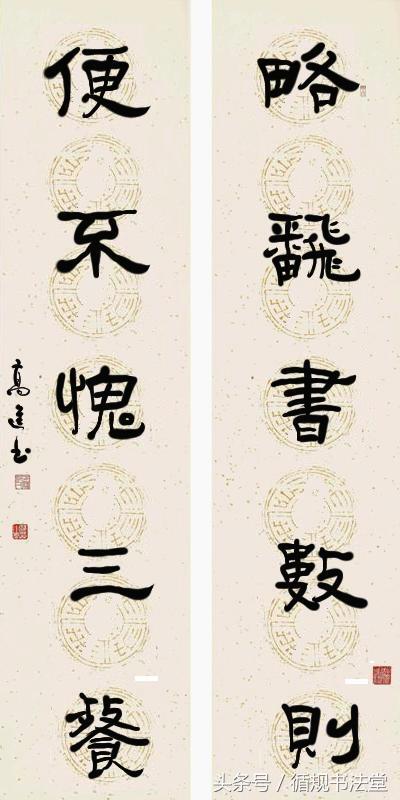 略飜書數則
便不愧三餐
高 书
头条号 / 循规书法堂